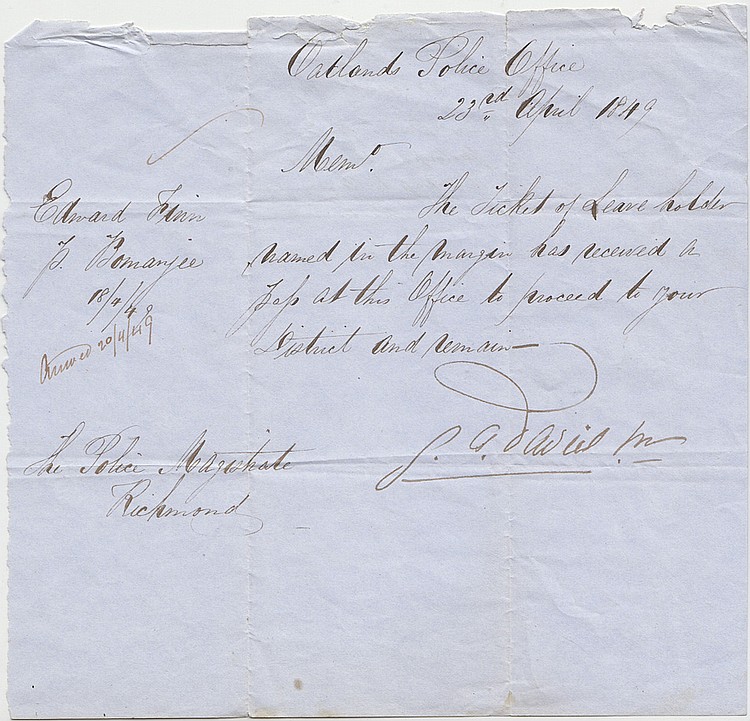 Oatlands Police Office
23rd April 1849
Memo.
Edward Finn
p. Bomanjee
18/4/4
Arrived 20/4/49
The Ticket of Leave holder
named in the margin has received a
Pass at this Office to proceed to your
District and remain—
The Police Magistrate
Richmond